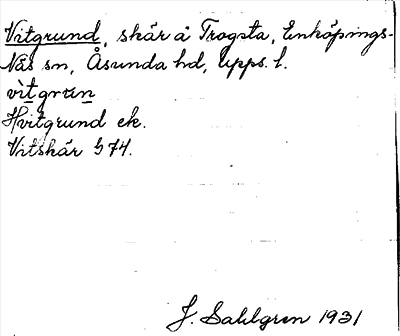 Vitgrund, skär å Trogsta, Enköpings-
Näs sn, Åsunda hd, Upps. l.
vìtgrøn
Hvitgrund ek.
Vitskär G 74.
J. Sahlgren 1931